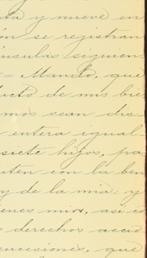 ta y nueve en
ón se registran
insulas siguien
– Mando, que
ducto de mis bie
mos sean dis
entera igual
siete hijos, pa
uten con la ben
y de la mia; y
enes mios, así co
derechos acció
ucesiones, que